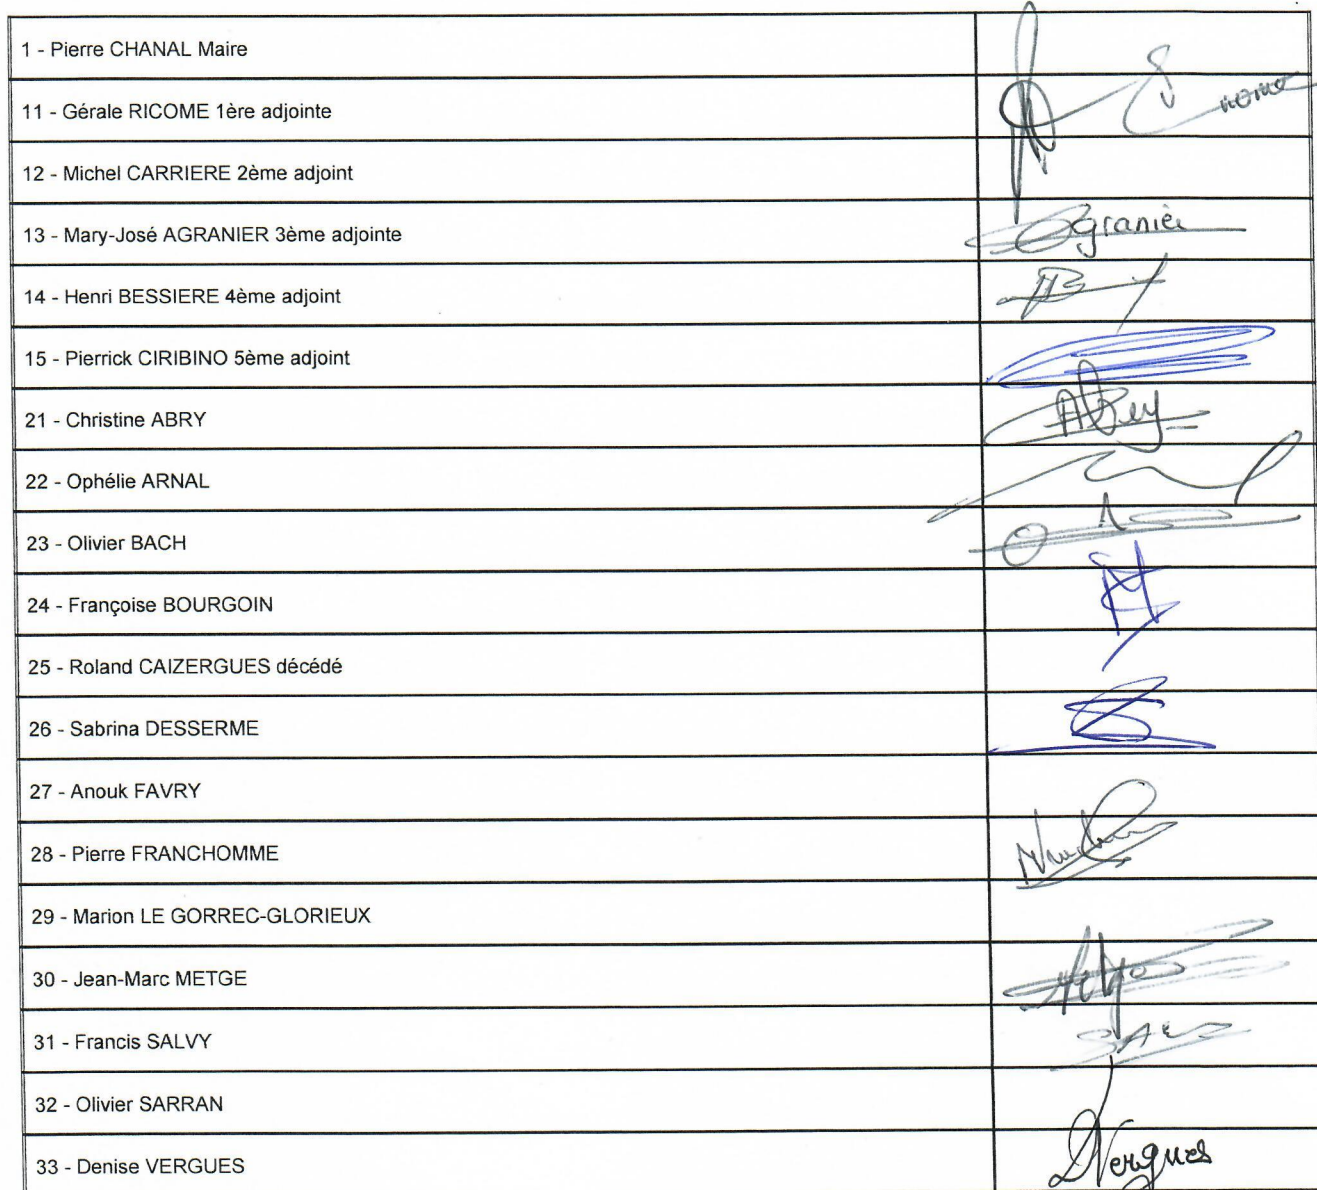 1 - Pierre CHANAL Maire
11 - Gérale RICOME 1ère adjointe
12 - Michel CARRIERE 2ème adjoint
13 - Mary-José AGRANIER 3ème adjointe
Agranier
14 - Henri BESSIERE 4ème adjoint
15 - Pierrick CIRIBINO 5ème adjoint
21 - Christine ABRY
Abry
22 - Ophélie ARNAL
23 - Olivier BACH
24 - Françoise BOURGOIN
25 - Roland CAIZERGUES décédé
26 - Sabrina DESSERME
27 - Anouk FAVRY
28 - Pierre FRANCHOMME
29 - Marion LE GORREC-GLORIEUX
30 - Jean-Marc METGE
31 - Francis SALVY
32 - Olivier SARRAN
33 - Denise VERGUES
DVergues